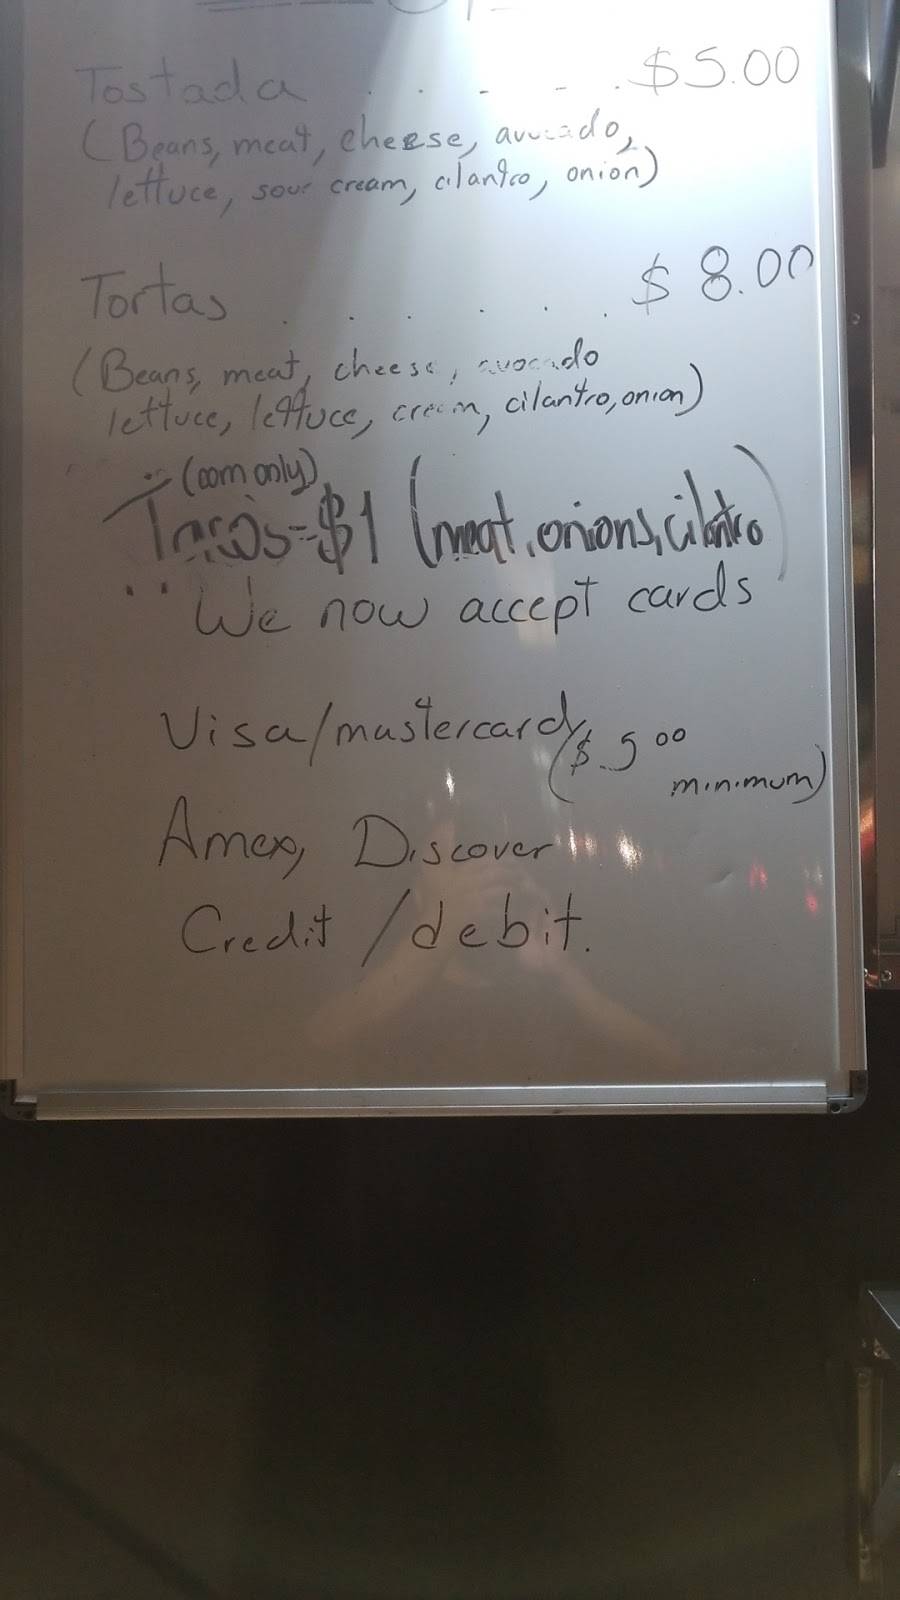 Tostada . . - - . $5.00
(Beans, meat, cheese, avocado,
lettuce, sour cream, cilantro, onion)
Tortas . . . . . . $8.00
(Beans, meat, cheese, avocado
lettuce, lettuce, cream, cilantro, onion)
(corn only)
Tacos-$1 (meat, onions, cilantro)
We now accept cards
Visa/mastercard ($.5⁰⁰
minimum)
Amex, Discover
Credit/debit.